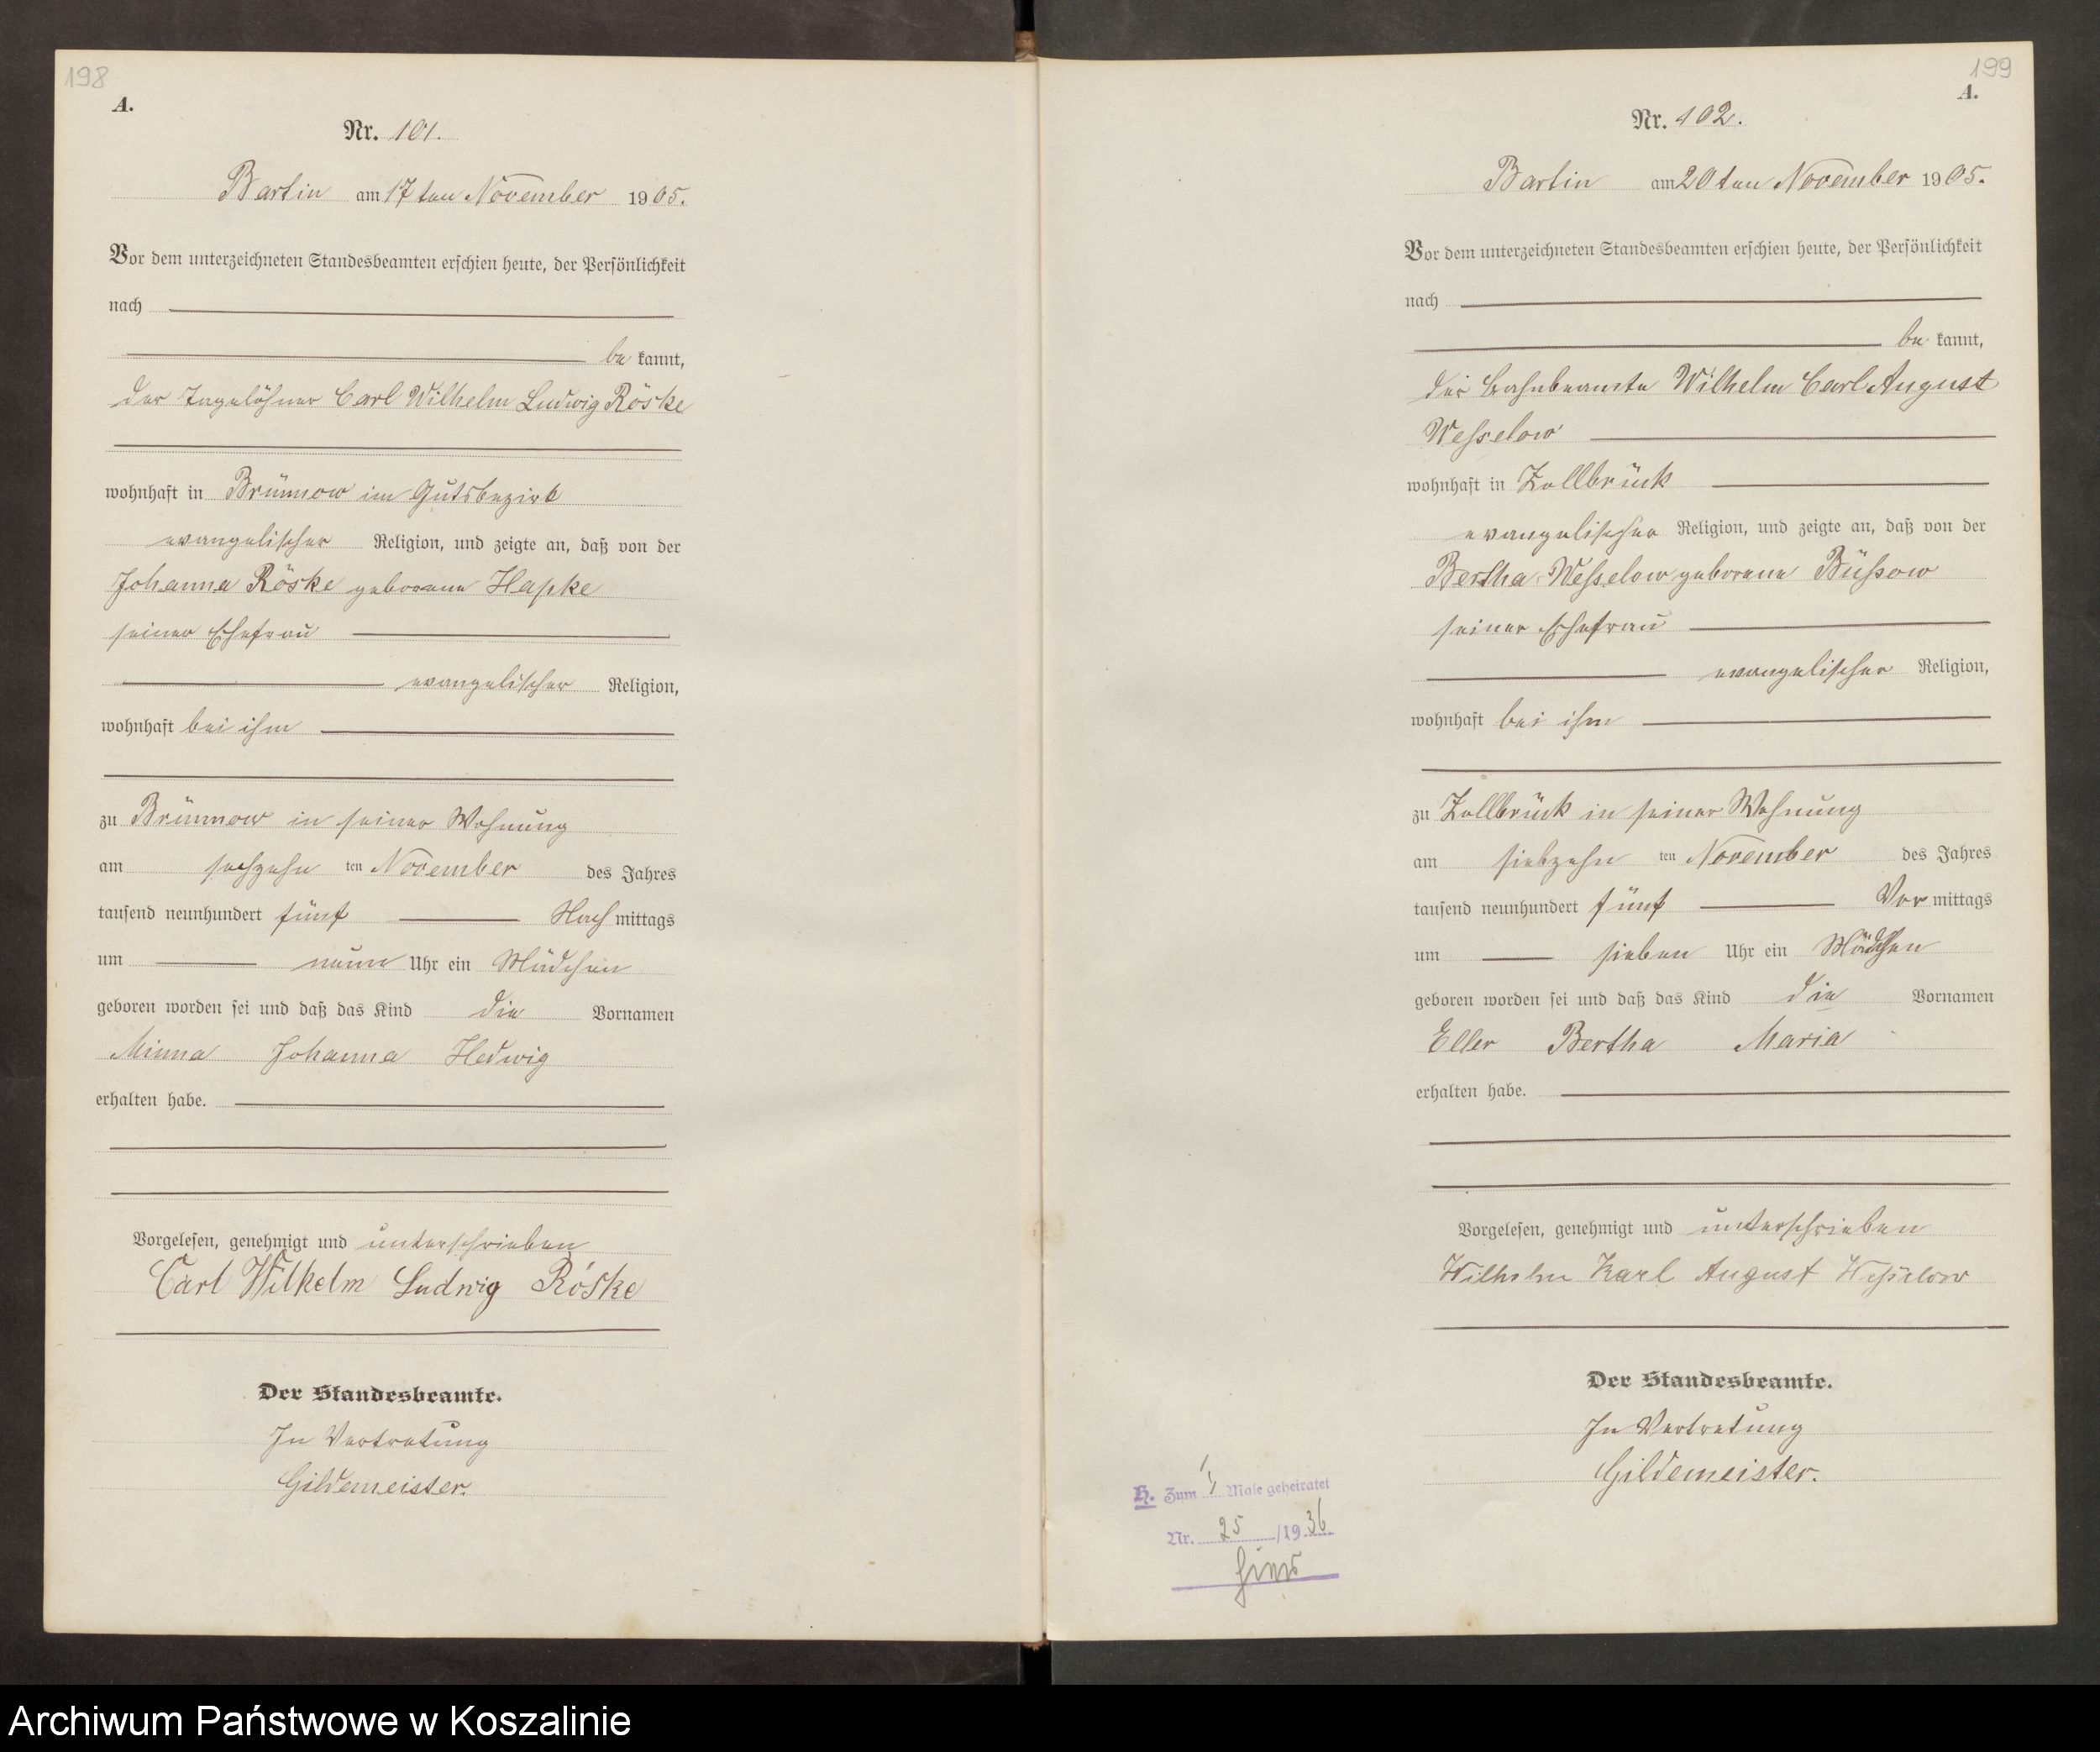 198
A.
Nr. 101.
Bartin am 17ten November 1905.
Vor dem unterzeichneten Standesbeamten erschien heute, der Persönlichkeit
nach
be kannt,
der Tagelöhner Carl Wilhelm Ludwig Röske
wohnhaft in Brünnow im Gutsbezirk
evangelischer Religion, und zeigte an, daß von der
Johanna Röske geborene Hapke
seiner Ehefrau
evangelischer Religion,
wohnhaft bei ihm
zu Brünnow in seiner Wohnung
am sechzehn ten November des Jahres
tausend neunhundert fünf Nach mittags
um neun Uhr ein Mädchen
geboren worden sei und daß das Kind die Vornamen
Minna Johanna Hedwig
erhalten habe.
Vorgelesen, genehmigt und unterschrieben
Carl Wilhelm Ludwig Röske
Der Standesbeamte.
In Vertretung
Gildemeister.
199
A.
Nr. 102.
Bartin am 20ten November 1905.
Vor dem unterzeichneten Standesbeamten erschien heute, der Persönlichkeit
nach
be kannt,
der Bahnbeamte Wilhelm Carl August
Wesselow
wohnhaft in Zollbrück
evangelischer Religion, und zeigte an, daß von der
Bertha Wesselow geborene Büssow
seiner Ehefrau
evangelischer Religion,
wohnhaft bei ihm
zu Zollbrück in seiner Wohnung
am siebzehn ten November des Jahres
tausend neunhundert fünf Vor mittags
um sieben Uhr ein Mädchen
geboren worden sei und daß das Kind die Vornamen
Bertha Maria
erhalten habe.
Vorgelesen, genehmigt und unterschrieben
Wilhelm Karl August Wesselow
Der Standesbeamte.
In Vertretung
Gildemeister.
H. Zum 1 Male geheiratet
Nr. 25 /1936
Archiwum Państwowe w Koszalinie